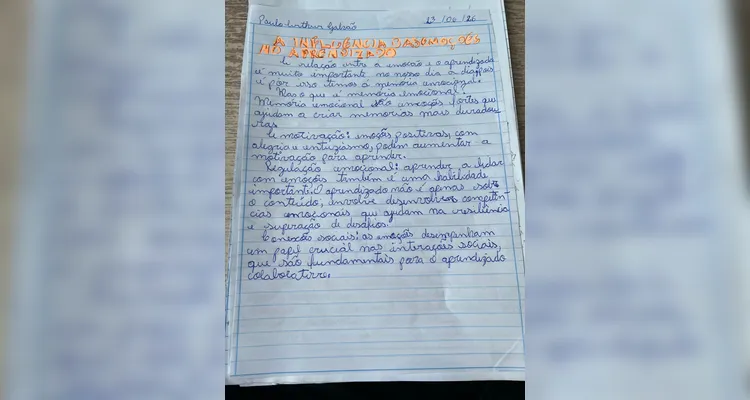 Paulo Arthur Galvão 13/06/26
A INFLUÊNCIA DAS EMOÇÕES
NO APRENDIZADO
A relação entre a emoção e o aprendizado
é muito importante no nosso dia a dia,
é por isso temos a memória emocional.
Mas o que é memória emocional?
Memória emocional são emoções fortes que
ajudam a criar memorias mais duradou
ras.
A motivação: emoções positivas, com
alegria e entuziasmo, podem aumentar a
motivação para aprender.
Regulação emocional: aprender a lidar
com emoções também é uma habilidade
importante. O aprendizado não é apenas sobre
o conteúdo, envolve desenvolver competên
cias emocionais que ajudam na resiliência
e superação de desafios.
Conexões sociais: as emoções desempenham
um papel crucial nas interações sociais,
que são fundamentais para o aprendizado
colaborativo.